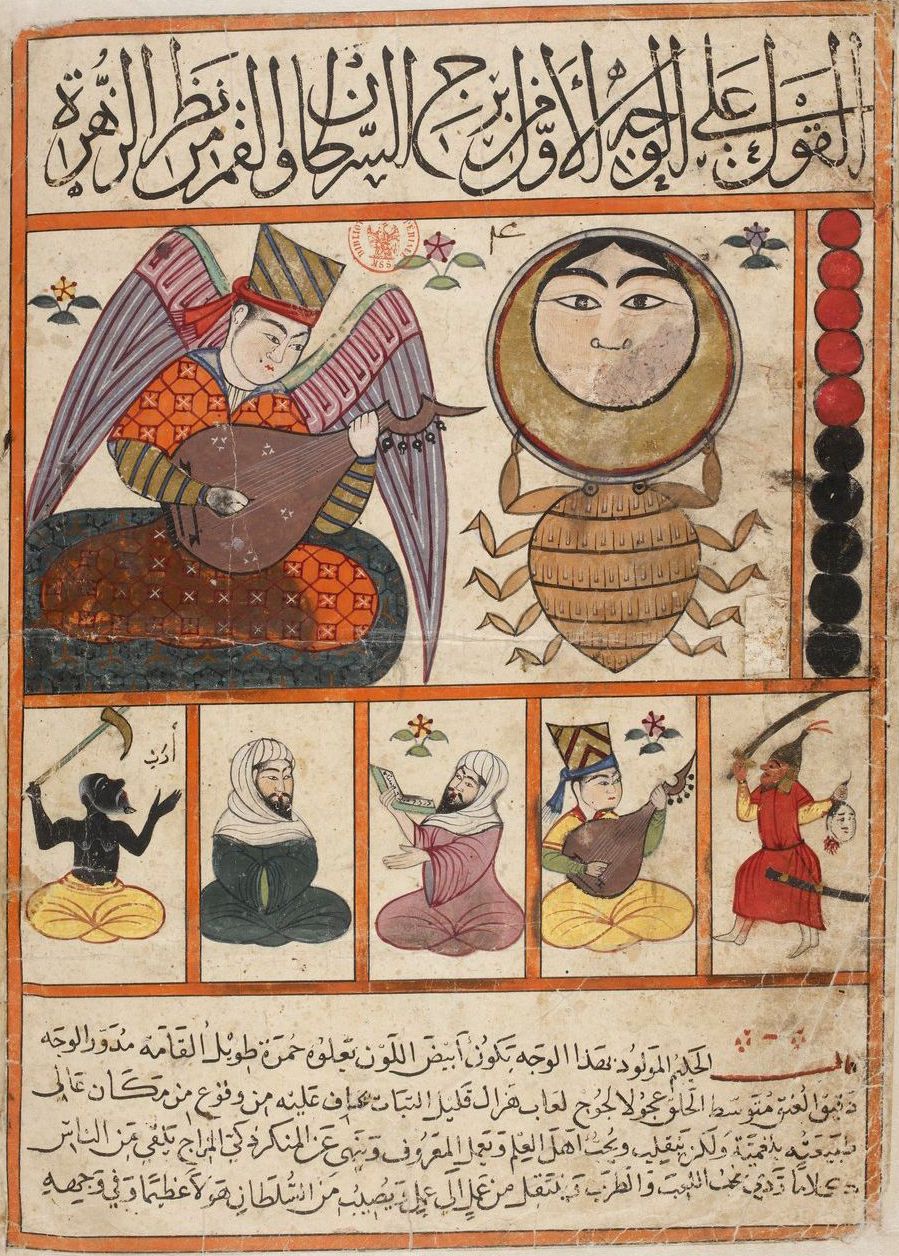 القول على الوجه الأول من برج السرطان والقمر من نظر الزهرة
BIBLIO
MSS
أدب
قال الحكيم المولود بهذا الوجه يكون أبيض اللون تعلوه حمرة طويل القامة مدور الوجه
دقيق العنق متوسط الحلق عجولا لحوح لعاب هزال قليل الثبات يخاف عليه من وقوع من مكان عالى
طبيعته بلغمية ولكن يتقلب ويحب أهل العلم ويعمل المعروف وينهى عن المنكر ذكي المزاج يلقى من الناس
كلاما ردى يحب اللعب والطرب يتنقل من عمل إلى عمل ويصيبه من السلطان هولا عظيما وفي وجهه